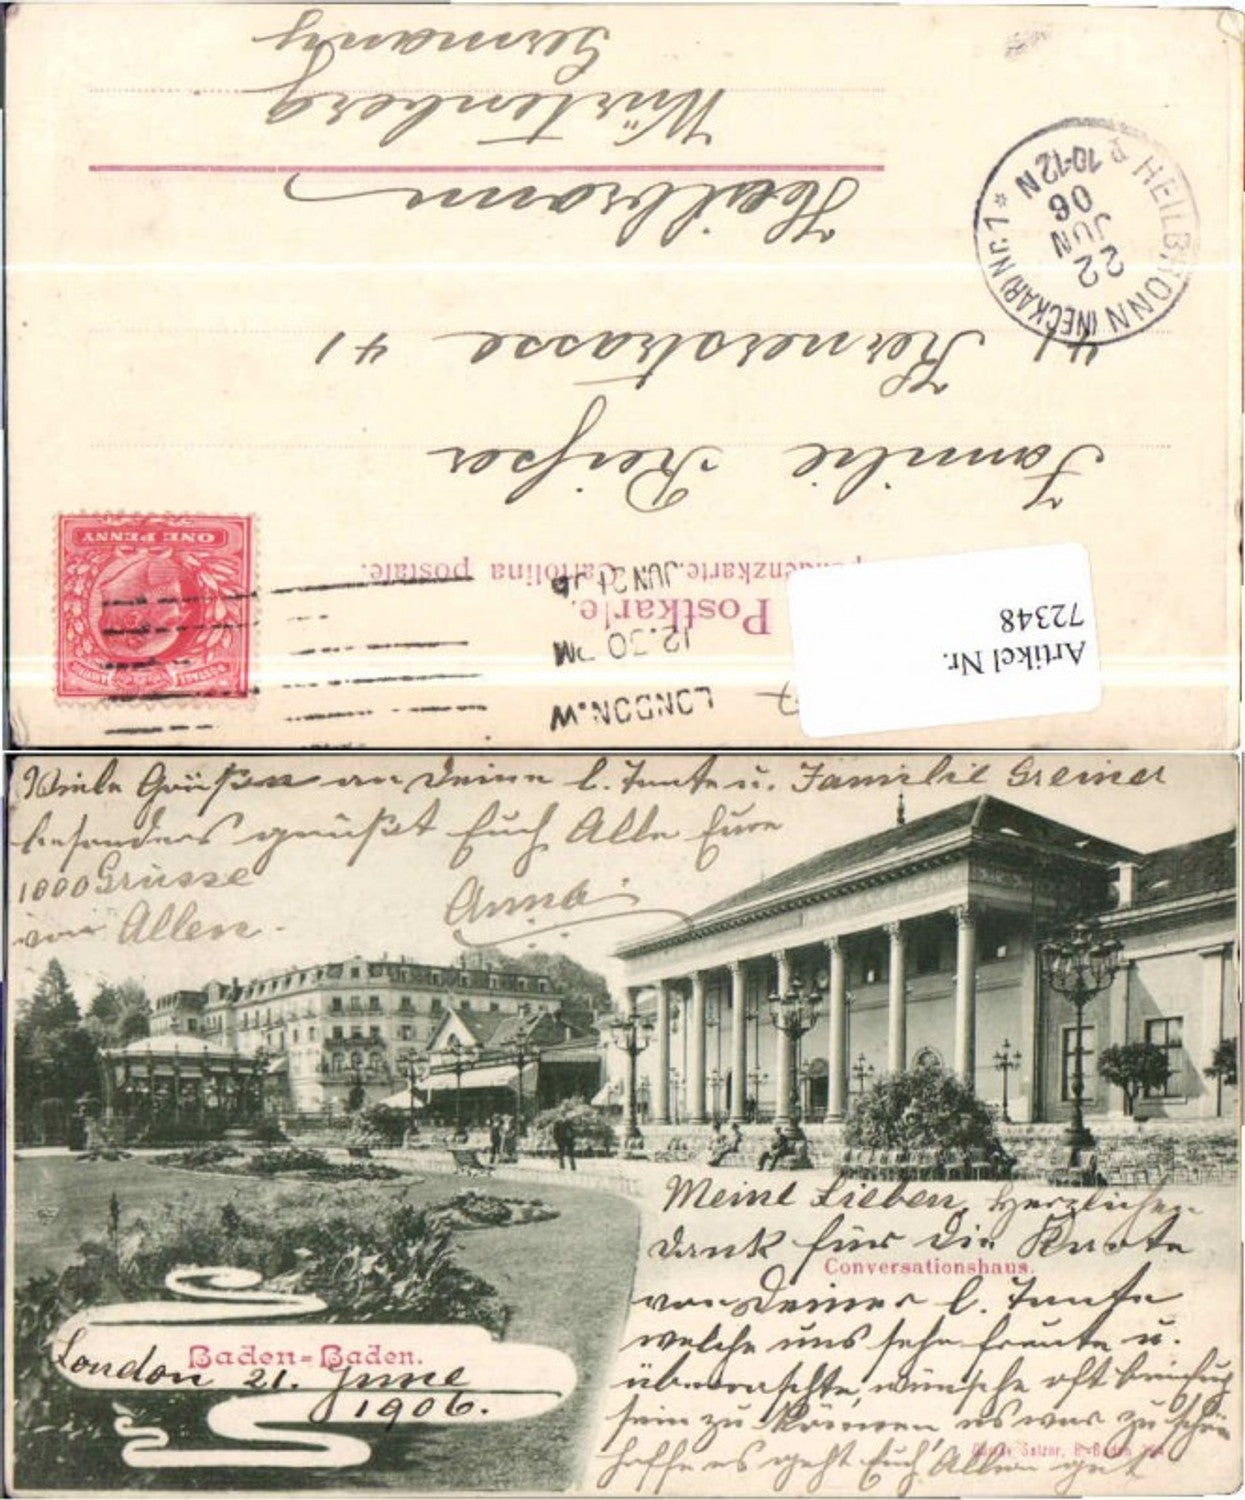 Germany
Würtemberg
Heilbronn
41 Kernerstrasse 41
Familie Reiser
Postkarte.
Cartolina postale.
LONDON.W.
12.30 PM
JUN 21 06
ONE PENNY
HEILBRONN (NECKAR) Nr. 1 *
22
JUN
06
10-12 N
Artikel Nr.
72348
Viele Grüsse an Deine l. Tante u. Familie Greiner
besonders grüßt Euch Alle Eure
1000 Grüsse
von Allen.
Anna
Meine Lieben, Herzlichen
Dank für die Karte
Conversationshaus.
von Deiner l. Tante
welche uns sehr freute u.
überraschte, wünsche oft
sein zu können, es war zu schön
hoffe es geht Euch Allen gut
Baden-Baden.
London 21. June
1906.